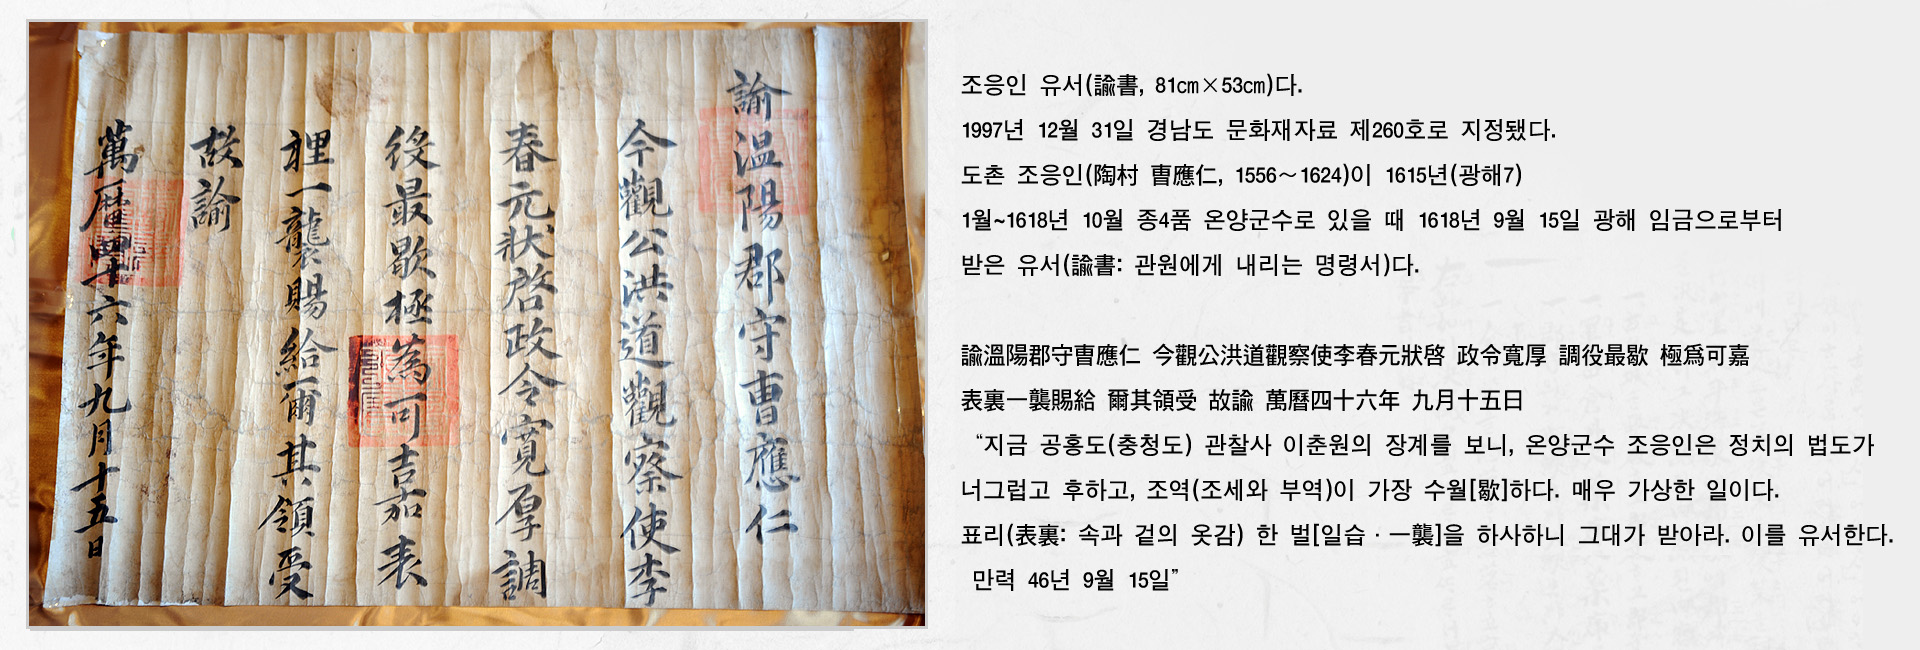 諭溫陽郡守曺應仁
今觀公洪道觀察使李
春元狀啓政令寬厚調
役最歇極為可嘉表
裡一襲賜給爾其領受
故諭
萬曆四十六年九月十五日
조응인 유서(諭書, 81cm×53cm)다.
1997년 12월 31일 경남도 문화재자료 제260호로 지정됐다.
도촌 조응인(陶村 曺應仁, 1556～1624)이 1615년(광해7)
1월~1618년 10월 종4품 온양군수로 있을 때 1618년 9월 15일 광해 임금으로부터
받은 유서(諭書: 관원에게 내리는 명령서)다.
諭溫陽郡守曺應仁 今觀公洪道觀察使李春元狀啓 政令寬厚 調役最歇 極爲可嘉
表裏一襲賜給 爾其領受 故諭 萬曆四十六年 九月十五日
“지금 공홍도(충청도) 관찰사 이춘원의 장계를 보니, 온양군수 조응인은 정치의 법도가
너그럽고 후하고, 조역(조세와 부역)이 가장 수월[歇]하다. 매우 가상한 일이다.
표리(表裏: 속과 겉의 옷감) 한 벌[일습·一襲]을 하사하니 그대가 받아라. 이를 유서한다.
만력 46년 9월 15일”